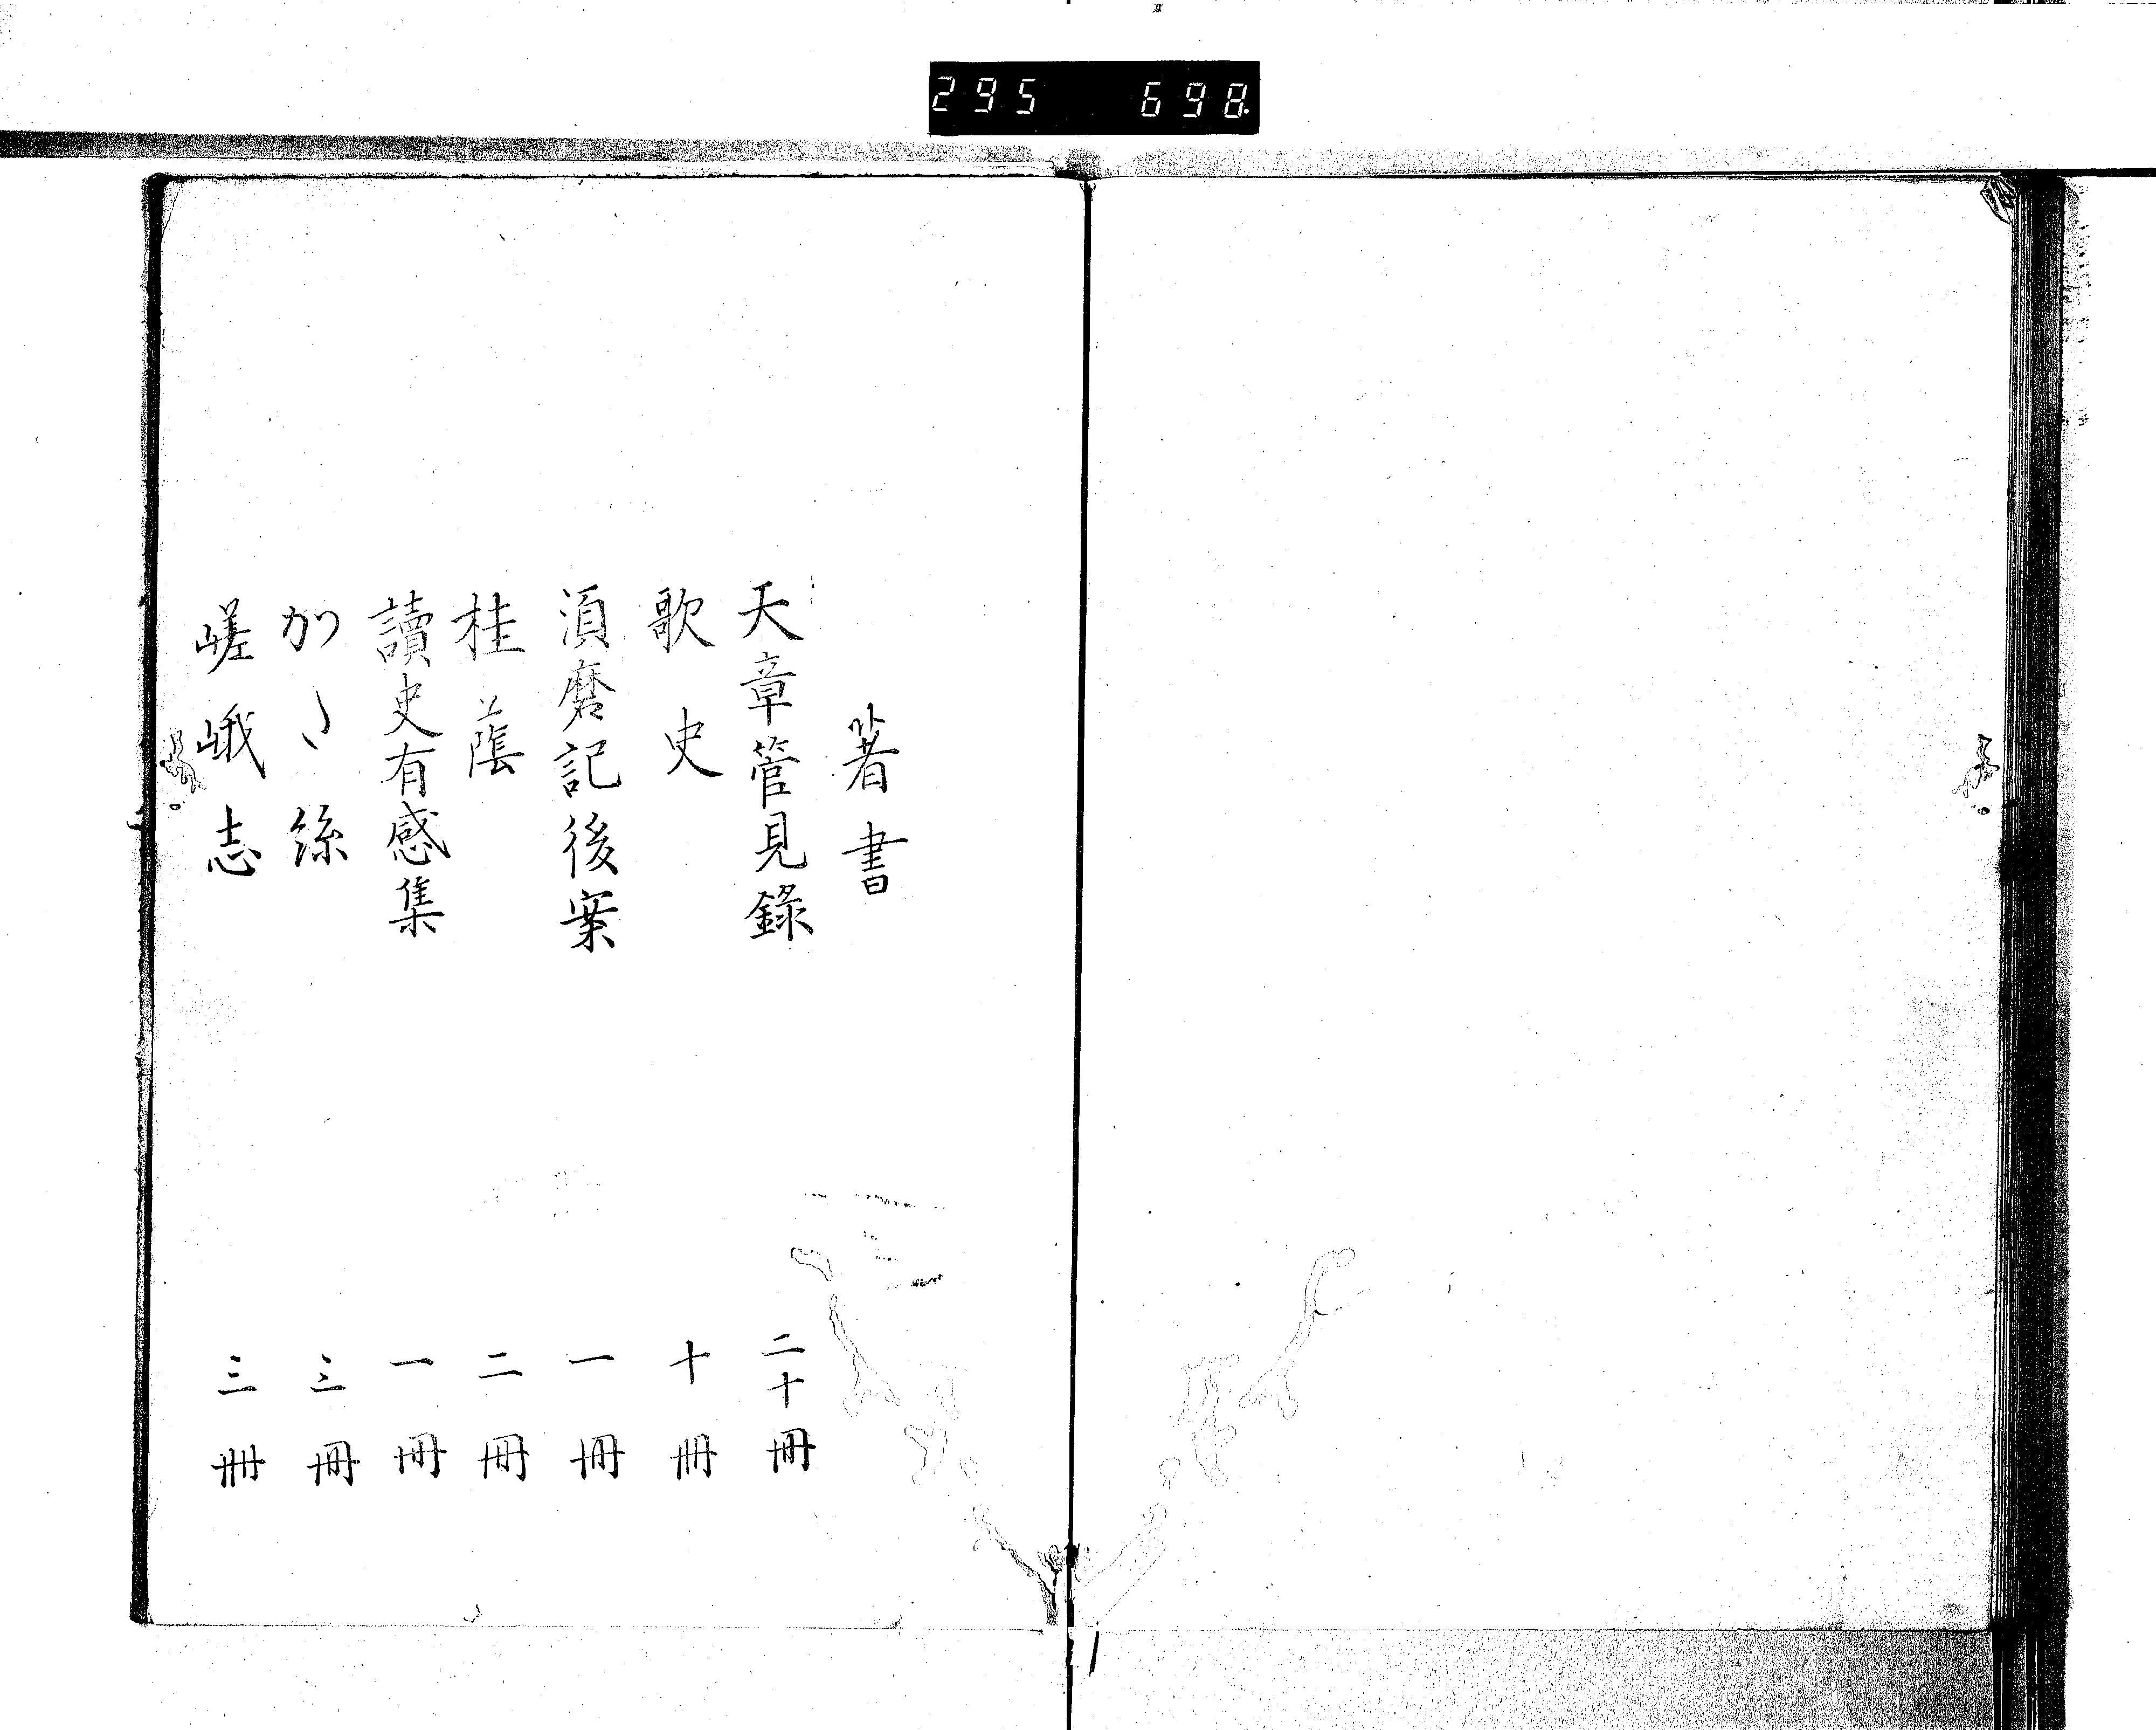 295 698
著書
天章管見錄 二十冊
歌史 十冊
須磨記後案 一冊
桂蔭 二冊
讀史有感集 一冊
かつゝ絲 三冊
嵯峨志 三冊